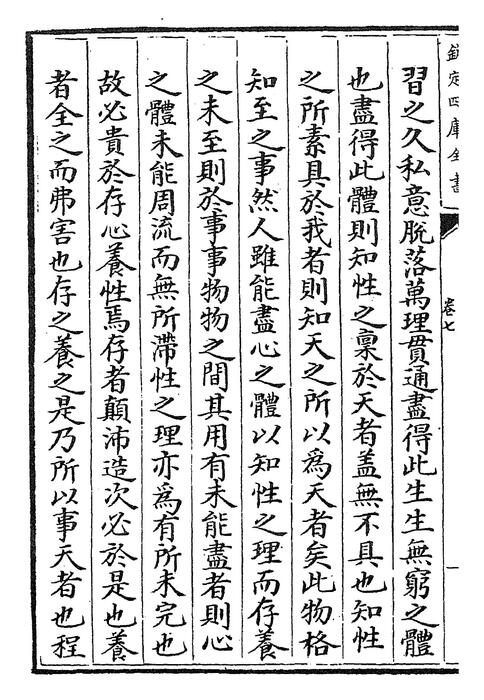 欽定四庫全書
卷七
一
習之久私意脫落萬理貫通盡得此生生無窮之體
也盡得此體則知性之稟於天者盖無不具也知性
之所素具於我者則知天之所以為天者矣此物格
知至之事然人雖能盡心之體以知性之理而存養
之未至則於事事物物之間其用有未能盡者則心
之體未能周流而無所滯性之理亦為有所未完也
故必貴於存心養性焉存者顛沛造次必於是也養
者全之而弗害也存之養之是乃所以事天者也程